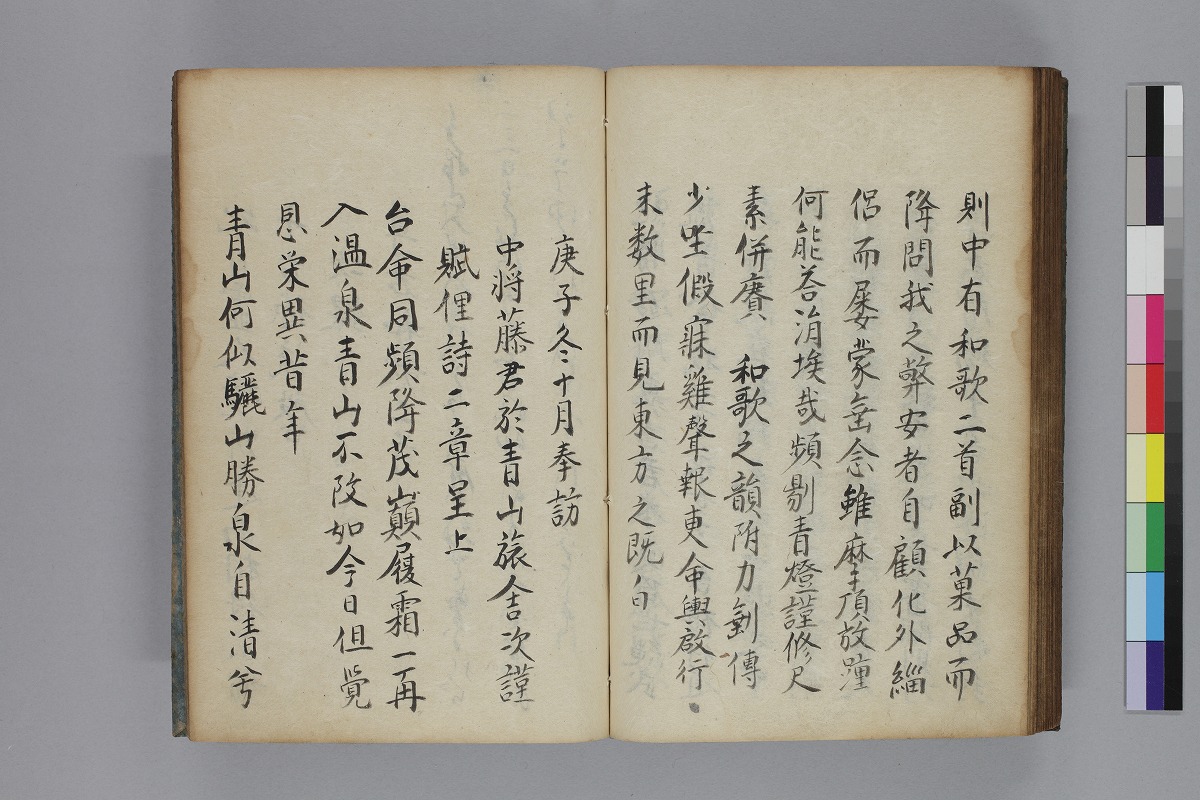 則中有和歌二首副以菓品而
降問我之弊安者自顧化外緇
侶而屡蒙垂念雖摩頂放踵
何能荅涓埃哉頻剔青燈謹修尺
素併賡　和歌之韻附力剣傳
少坐假寐雞聲報更命輿啟行
未数里而見東方之既白
庚子冬十月奉訪
中将藤君於青山旅舎次謹
賦俚詩二章呈上
台命同頻降茂巔履霜一再
入温泉青山不改如今日但覺
恩栄異昔年
青山何似驪山勝泉自清兮